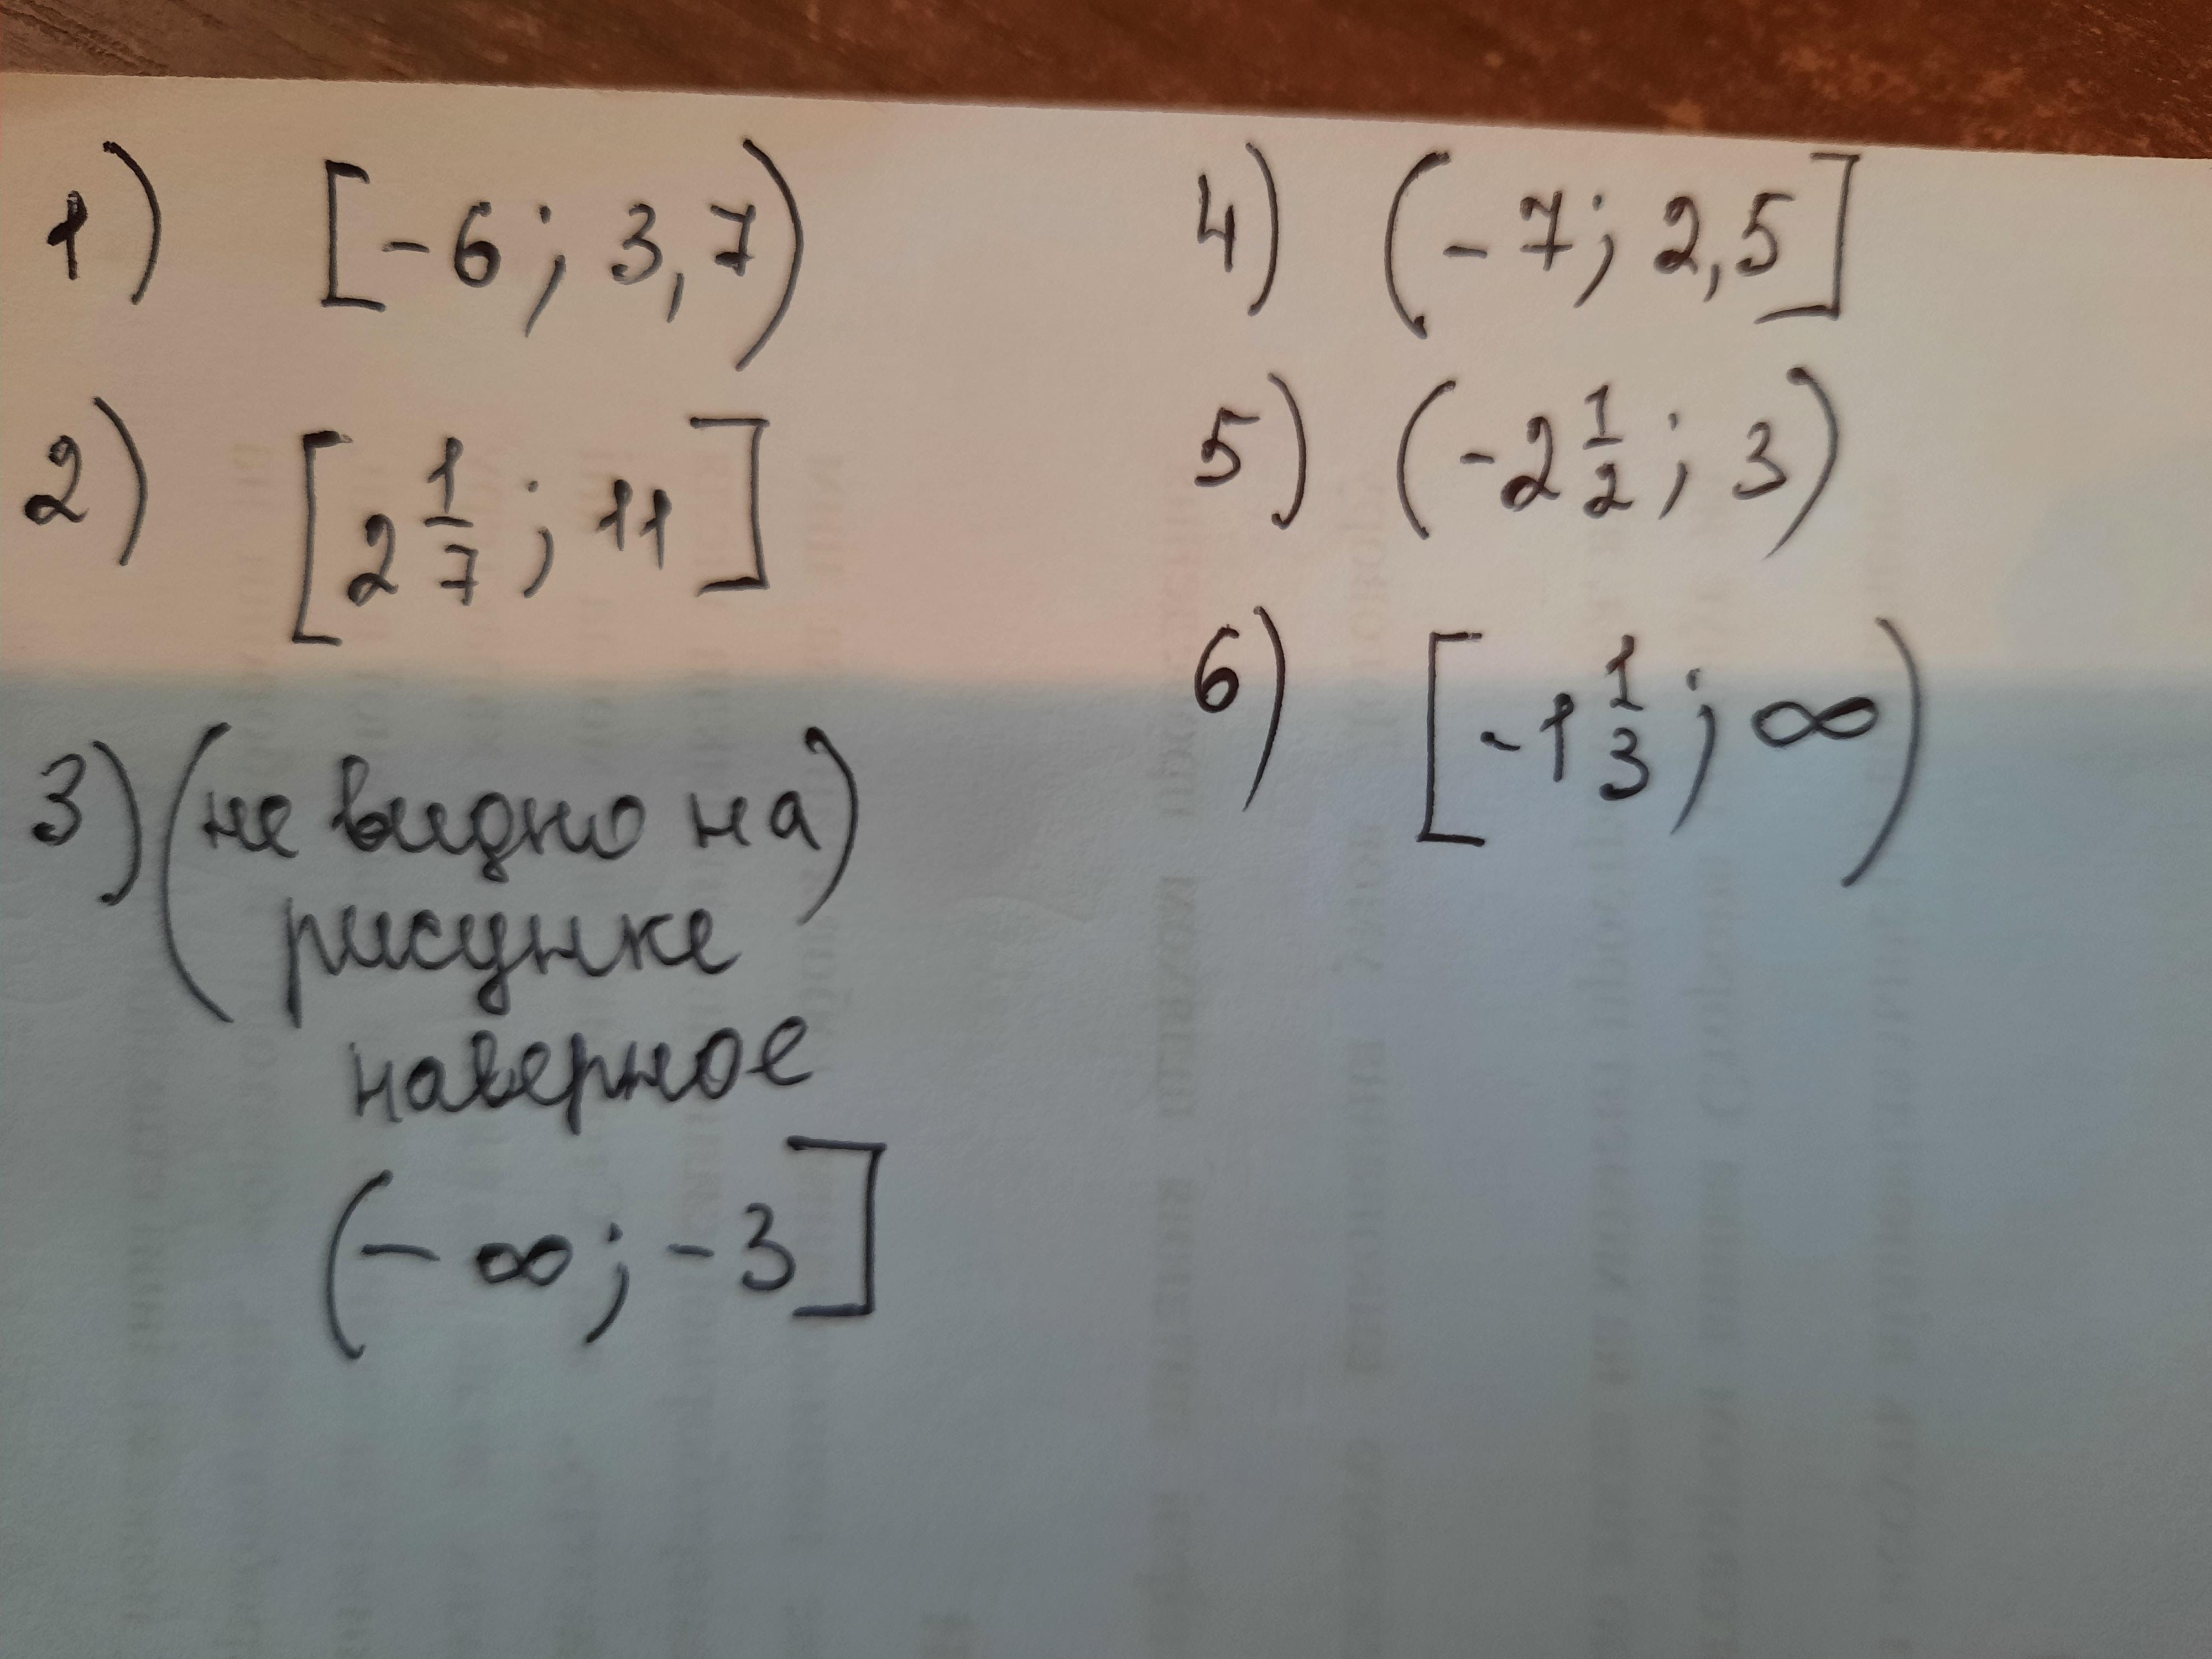 1) [-6; 3,7)
2) [2 1/7; 11]
3) (не видно на)
рисунке
наверное
(-∞; -3]
4) (-7; 2,5]
5) (-2 1/2; 3)
6) [-1 1/3; ∞)